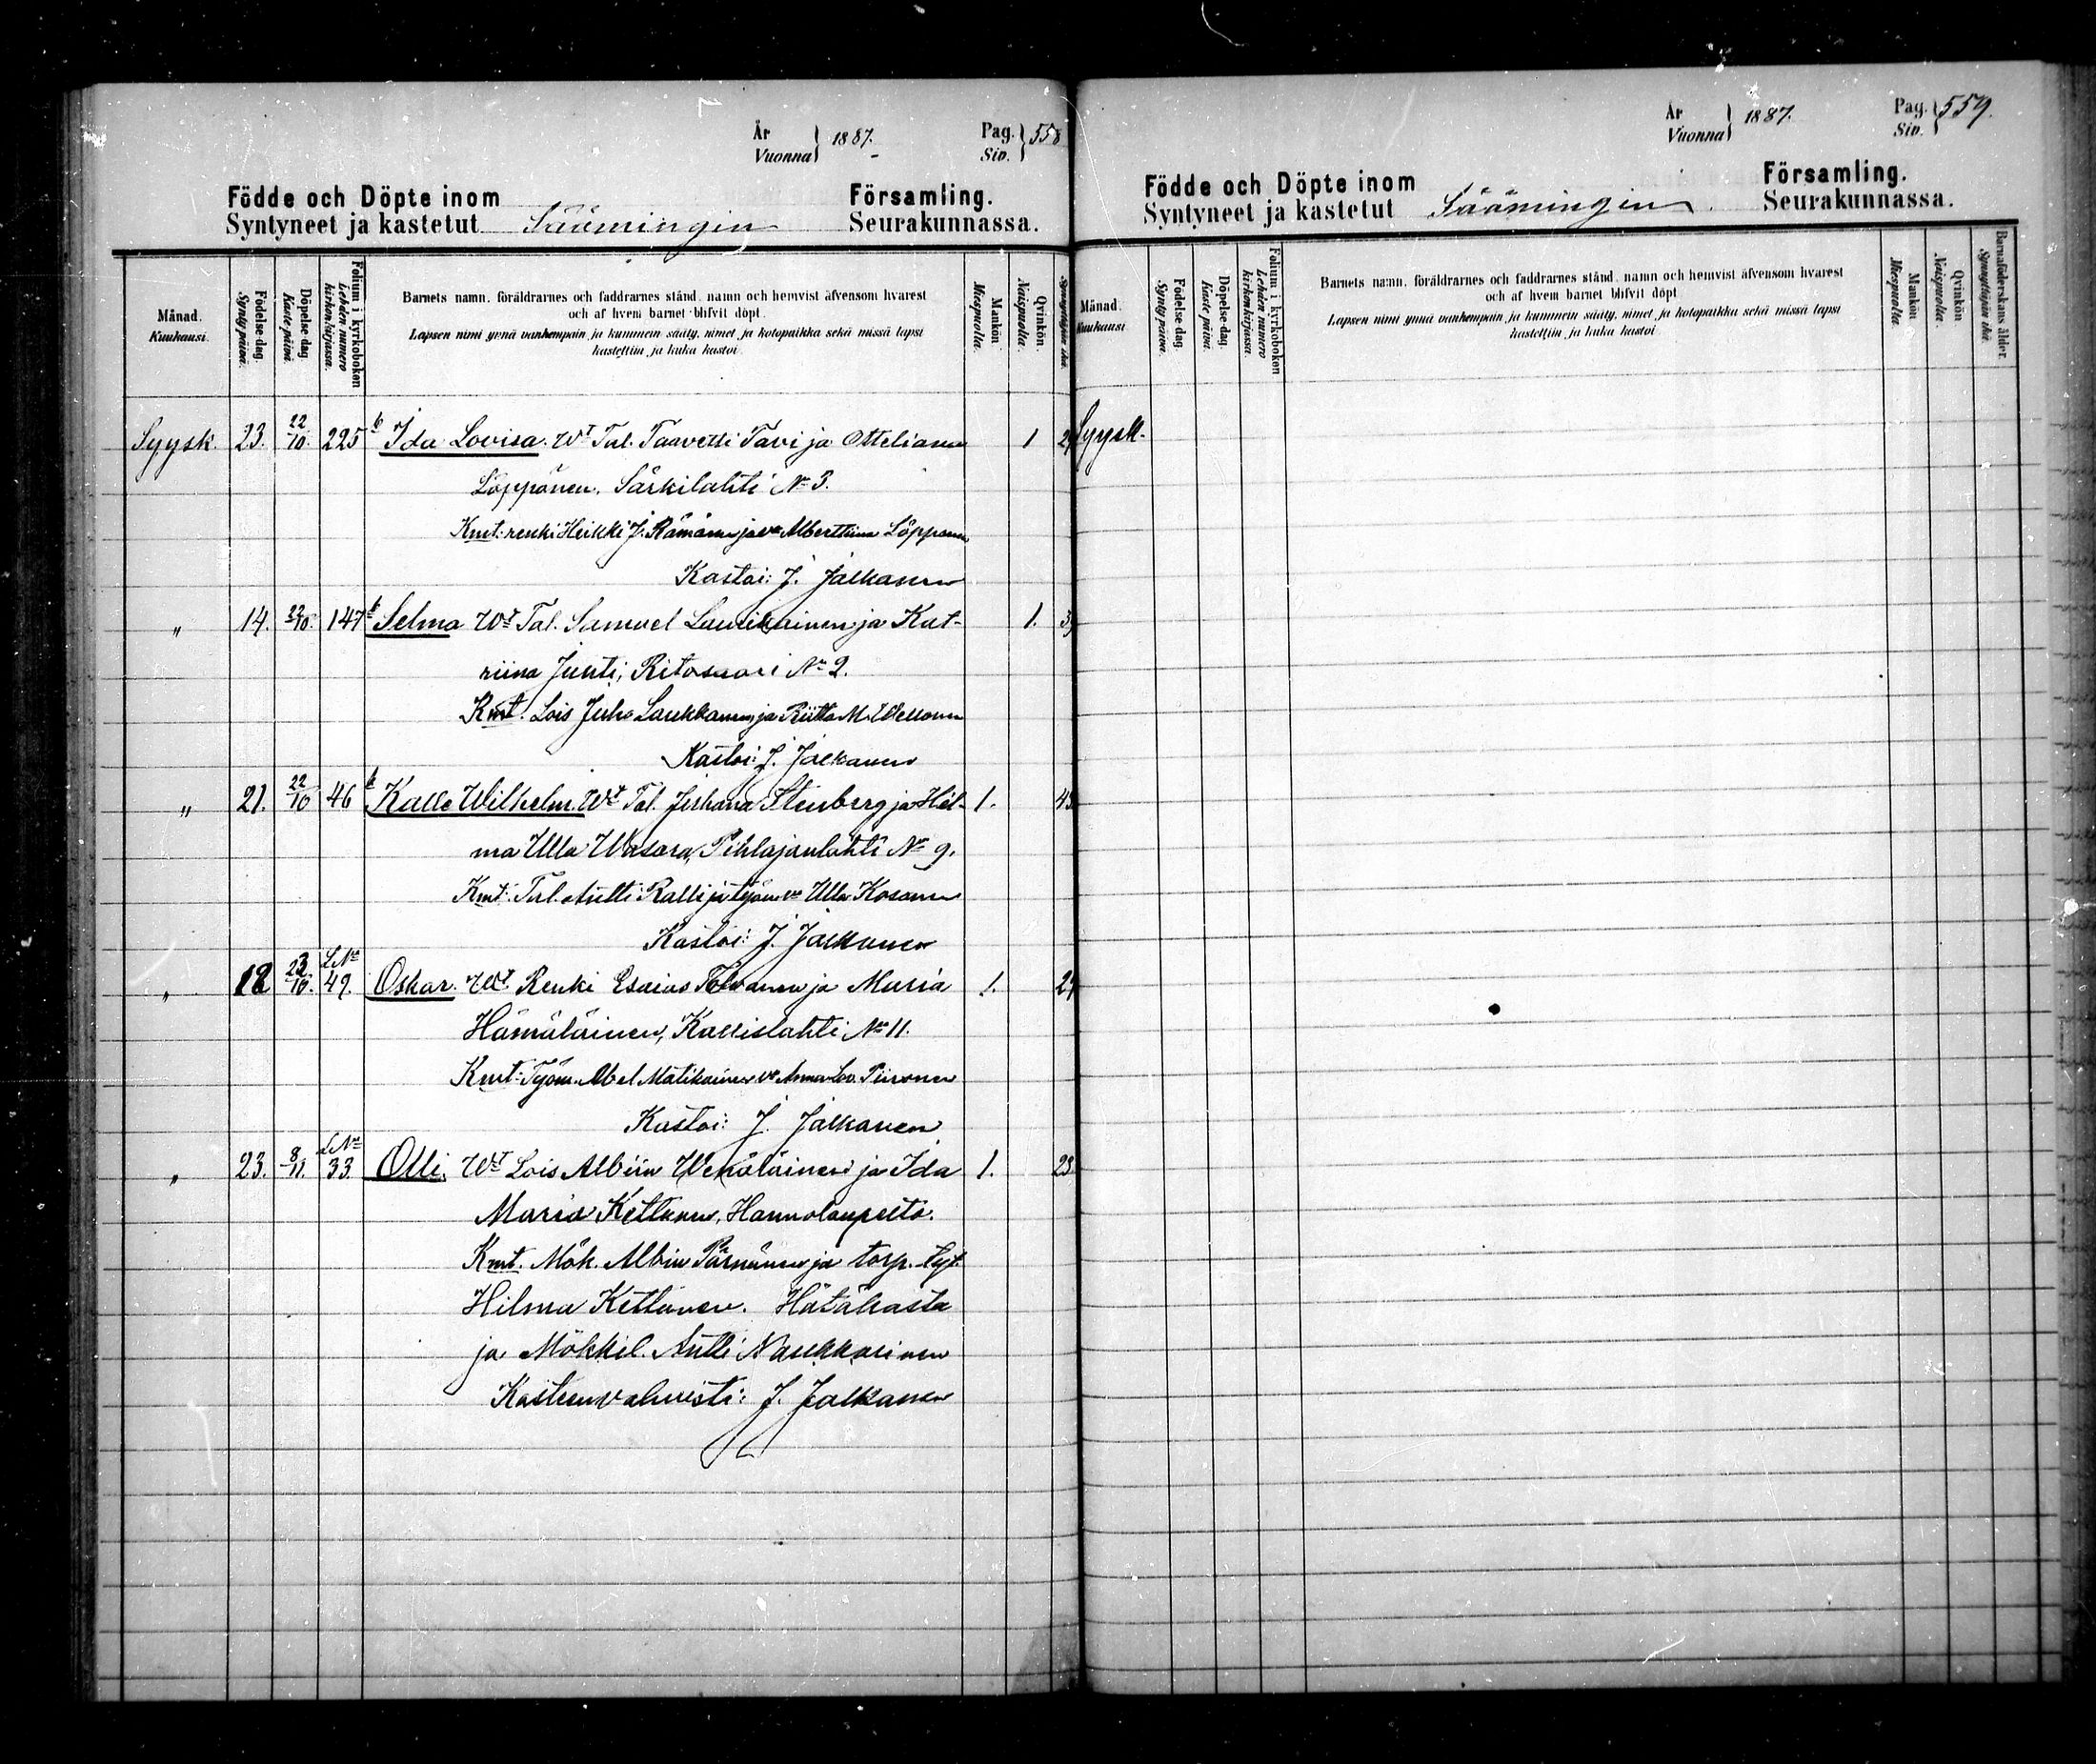 År
Vuonna } 1887.
Pag.
Siv. } 558
Födde och Döpte inom
Syntyneet ja kastetut Sääмingin
Församling.
Seurakunnassa.
Månad.
Kuukausi.
Födelse-dag.
Syntypäivä.
Döpelse-dag.
Kaste-päivä.
Folium i kyrkoboken
Lehden numero
kirkonkirjassa.
Barnets namn, föräldrarnes och faddrarnes stånd, namn och hemvist äfvensom hvarest
och af hvem barnet blifvit döpt.
Lapsen nimi ynnä vanhempain ja kummein sääty, nimet ja kotopaikka sekä missä lapsi
kastettiin ja kuka kastoi.
Mankön.
Miespuolia.
Qvinkön.
Naispuolia.
Syysk. 23. 22/10. 225 b Ida Lovisa. Wt Tal. Taavetti Tavi ja Otteliana 1
Löppönen. Särkilahti No 3.
Kmt: renki Heikki J. Rämänen ja va Alberttiina Löppönen
Kastoi: J. Jalkanen
" 14. 22/10. 147 b Selma Wt Tal. Samuel Laurikainen ja Kat- 1.
riina Juuti; Ritosaari No 2.
Kmt. Lois Juho Laukkanen ja Riitta M.
Kastoi: J. Jalkanen
" 21. 22/10 46 b Kalle Wilhelm. Wt Tal. Juhana Stenberg ja Hel- 1.
ma Ulla Wasara, Pihlajanlahti No 9.
Kmt: Tal. Antti Ralli ja työm. va Ulla Kosonen
Kastoi: J. Jalkanen
" 18 23/10. LNo 49. Oskar. Wt Renki Esaias Tolvanen ja Maria 1.
Hämäläinen, Kallislahti No 11.
Kmt: Työm. Abel Matikainen va Anna Lov. Piironen
Kastoi: J. Jalkanen
" 23. 8/11. LNo 33. Olli. Wt Lois Albiin Wenäläinen ja Ida 1. 23
Maria Kettunen, Hannolanpelto.
Kmt. Mök. Albin Pärnänen ja torp. tyt.
Hilma Kettunen. Hätäkasta
ja Mökkil. Antti Naukkarinen
Kasteen vahvisti: J. Jalkanen
År
Vuonna } 1887.
Pag.
Siv. } 559.
Födde och Döpte inom
Syntyneet ja kastetut Säämingin
Församling.
Seurakunnassa.
Månad.
Kuukausi
Födelse-dag.
Syntypäivä.
Döpelse-dag.
Kaste-päivä.
Folium i kyrkoboken
Lehden numero
kirkonkirjassa.
Barnets namn, föräldrarnes och faddrarnes stånd, namn och hemvist äfvensom hvarest
och af hvem barnet blifvit döpt
Lapsen nimi ynnä vanhempain ja kummein sääty, nimet ja kotopaikka sekä missä lapsi
kastettiin ja kuka kastoi
Mankön
Miespuolia.
Qvinkön
Naispuolia.
Barnaföderskans ålder.
Synnyttäjän ikä
Syysk.